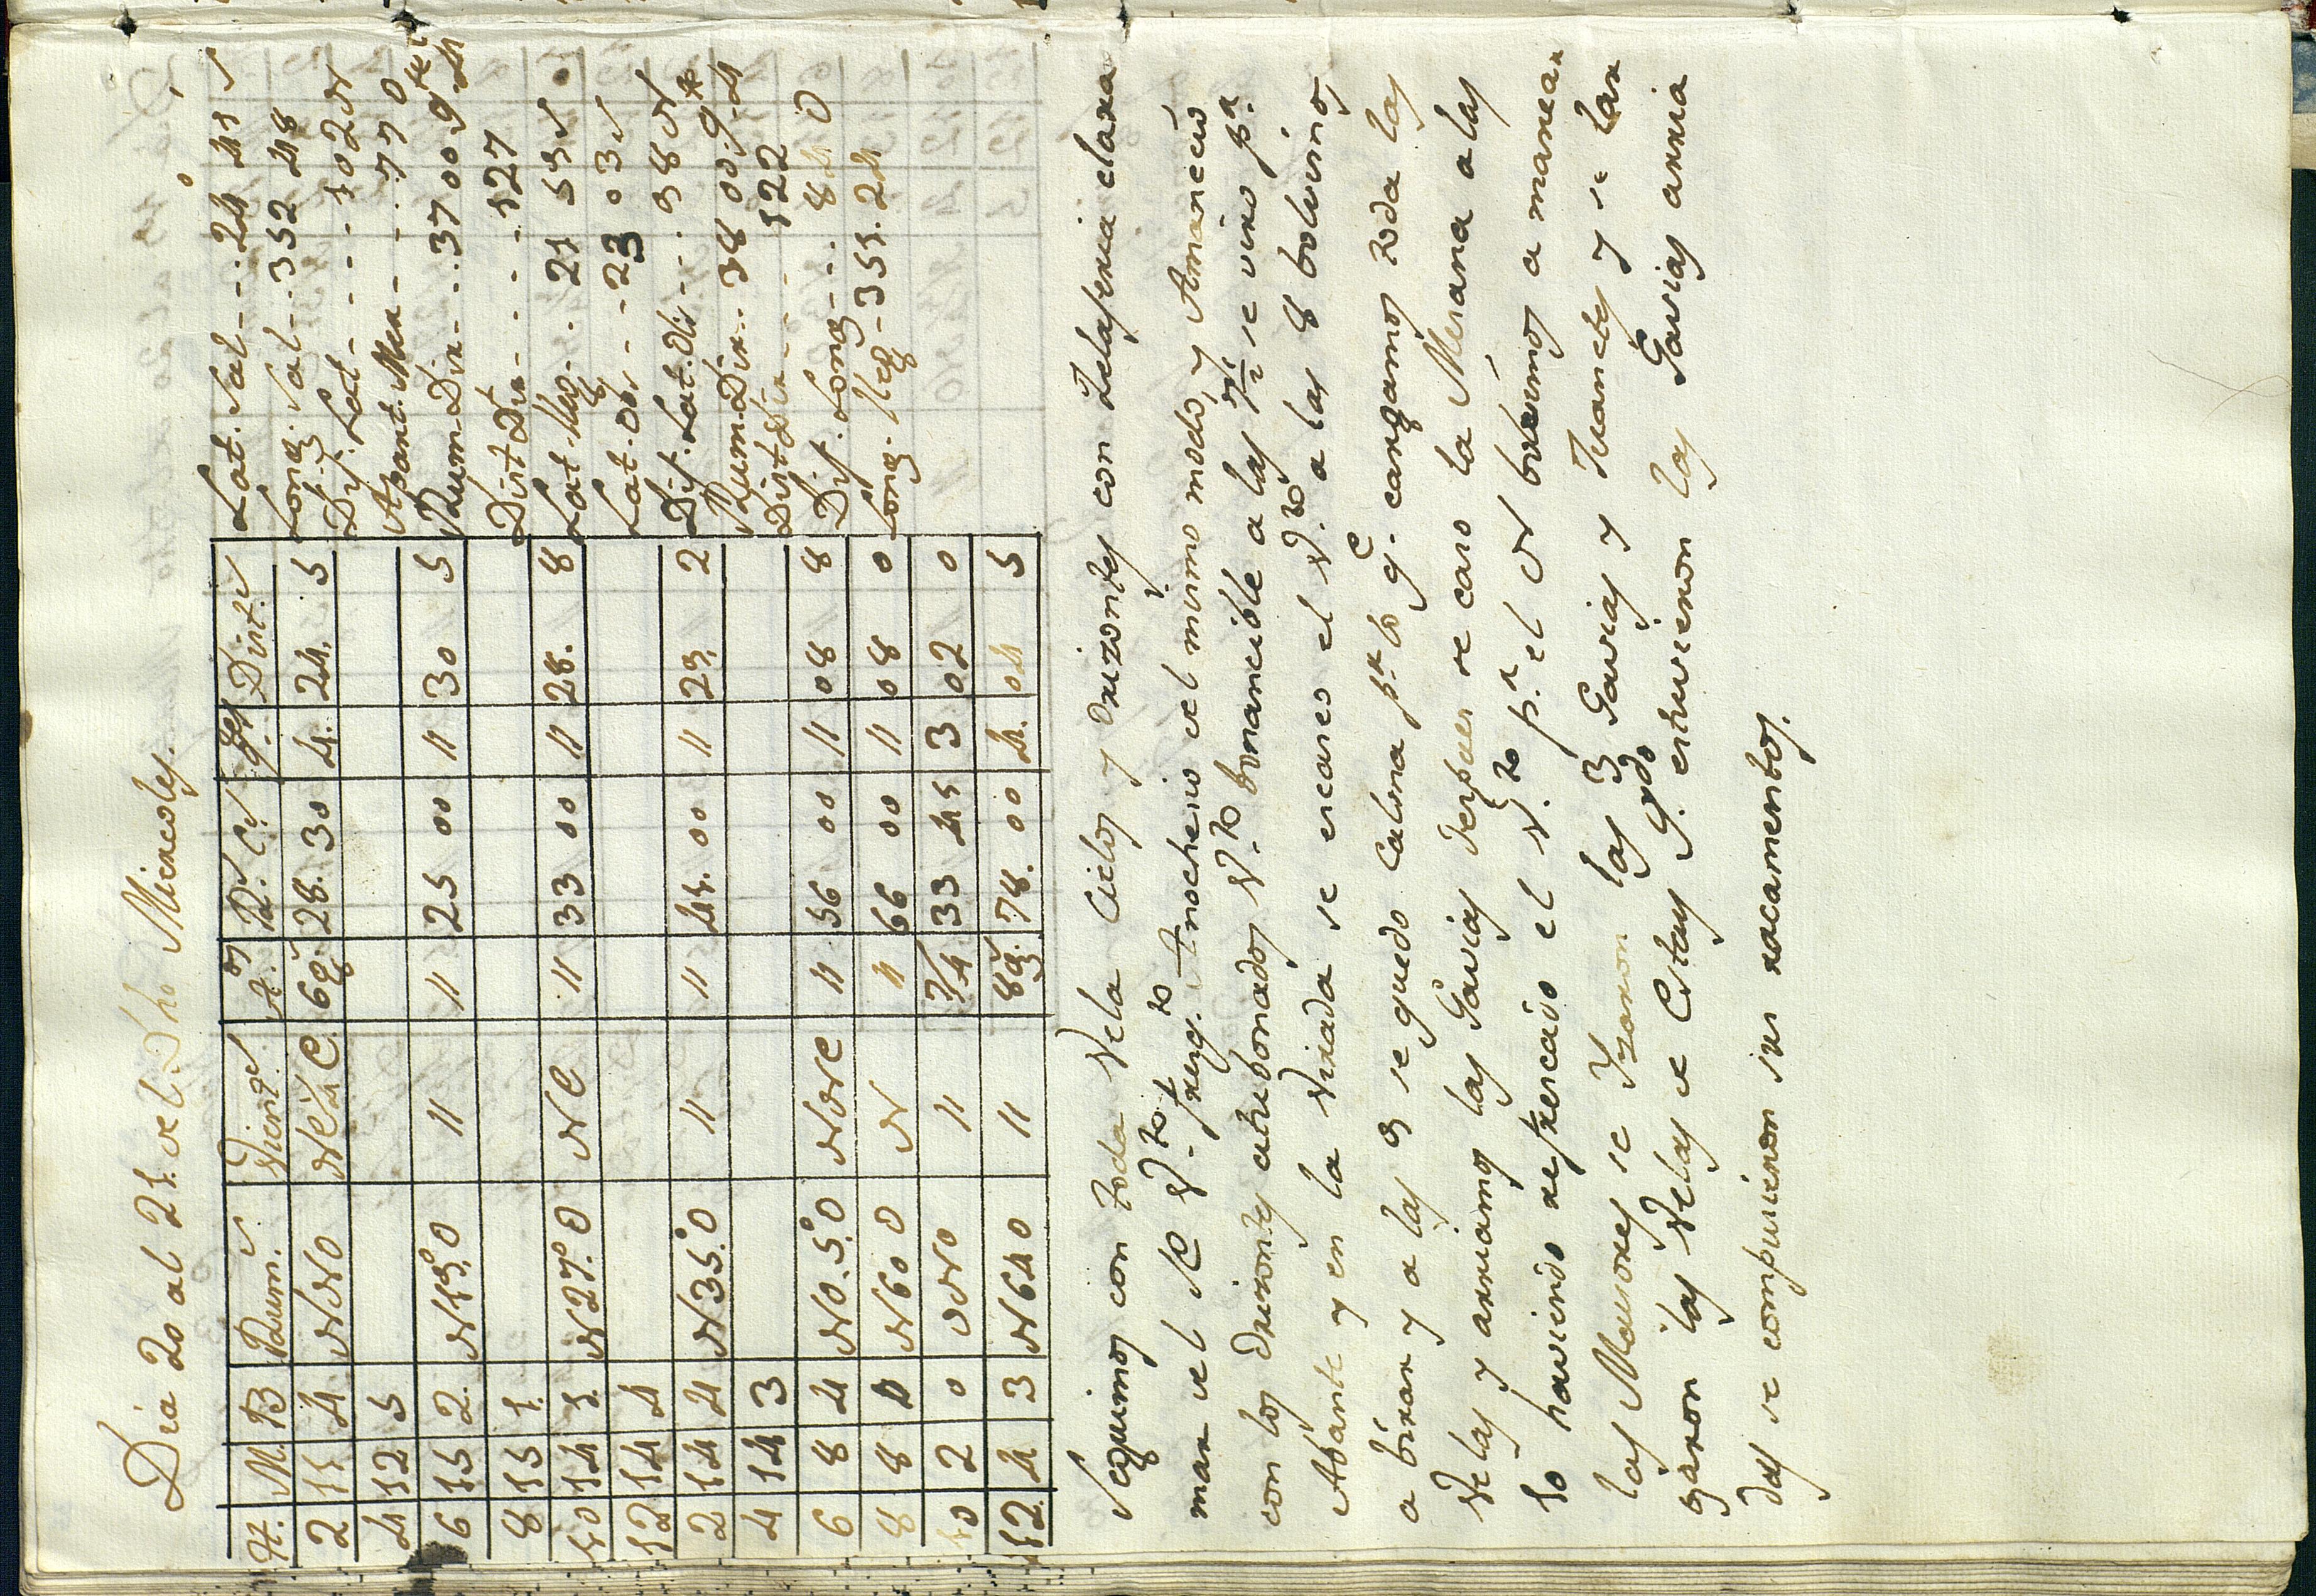 Dia 20 al 21. del Dho Miercoles.
H. M. B Rum.s Vient.s A.s R. C.s g.es Dist.s
2 11 4 NNO NE¼E. 6g. 28. 30 4. 24. 5
4 12 5
6 15 2. N19°.O " " 25 00 " 30 5
8 15 1.
10 14 3. N27°.O NE " 33 00 " 28. 8
12 14 4
2 14 4 N35°.O " " 45. 00 " 29. 2
4 14 3
6 8 4 NO.5°.O NNE " 56 00 " 08 8
8 8 0 N60 O N " 66 00 " 08 0
10 2 0 ONO " 3/4 33 45 3 02 0
12. 4. 3 N64 O " 8g. 78. 00 4. 04 5
Lat. Sal - - . 24 41 s
Long. Sal - - 352 48
Dif. Lat - - - - 102 N
Apart. Mer - - . 77 O
Rum. Dir - . . 37 00 g 4
Dist Dir - - - - 127
Lat. Neg. . 21 59 s
Lat. Os. - - 23 03 s
Dif. Lat. Os. - . . 98 N
Rum. Dir. . 38 00. g. 4
Dist Dir - - - - 122
Dif. Long. - - . 84 O
Long. Neg - 351. 24
Seguimos con toda Vela Cielos y Orizontes con Zelaferia clara
mar del SE V.to frezq.to Anochecio del mismo modo, y Amanecio
con los Orizontes achubonados V.to bonancible a las 7½ se viro p.r
Abante y en la Virada se escaseo el V.to a las 8 bolvimos
a birar y a las 9 se quedo Calma p.r lo q.e cargamos toda las
Velas y arriamos las Gavias despues se caso la Mesana a las
10 haviendo refrescado el V.to p.r el N bolvimos a marear
las Mayores se Izaron las 3 Gavias y Juanetes y se lar
garon las Velas de Estay Q.do estuvieron las Gavias arria
das se compusieron sus racamentos.